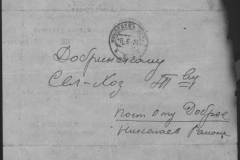 Добринскому
Сел-Хоз Т ву
пост Оту Доброе
Николаев Района